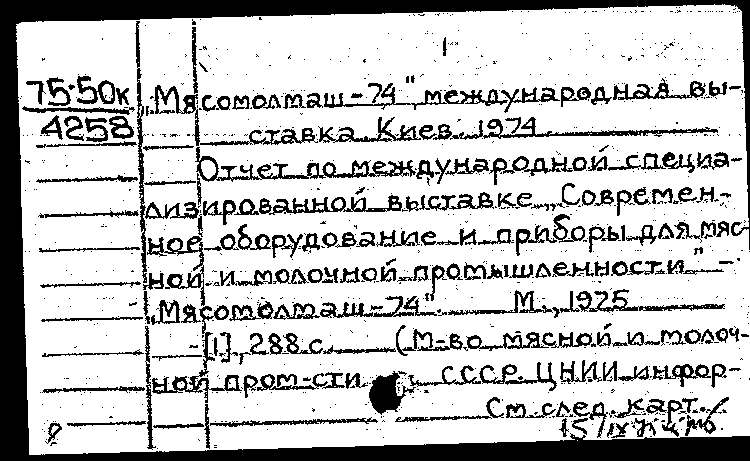 75-50к
4258
„Мясомолмаш-74" международная вы-
ставка. Киев. 1974.
Отчет по международной специа-
лизированной выставке „Современ-
ное оборудование и приборы для мяс-
ной и молочной промышленности" -
„Мясомолмаш-74". М., 1975
[1], 288 с. (М-во мясной и молоч-
ной пром-сти СССР. ЦНИИ инфор-
См. след. карт.